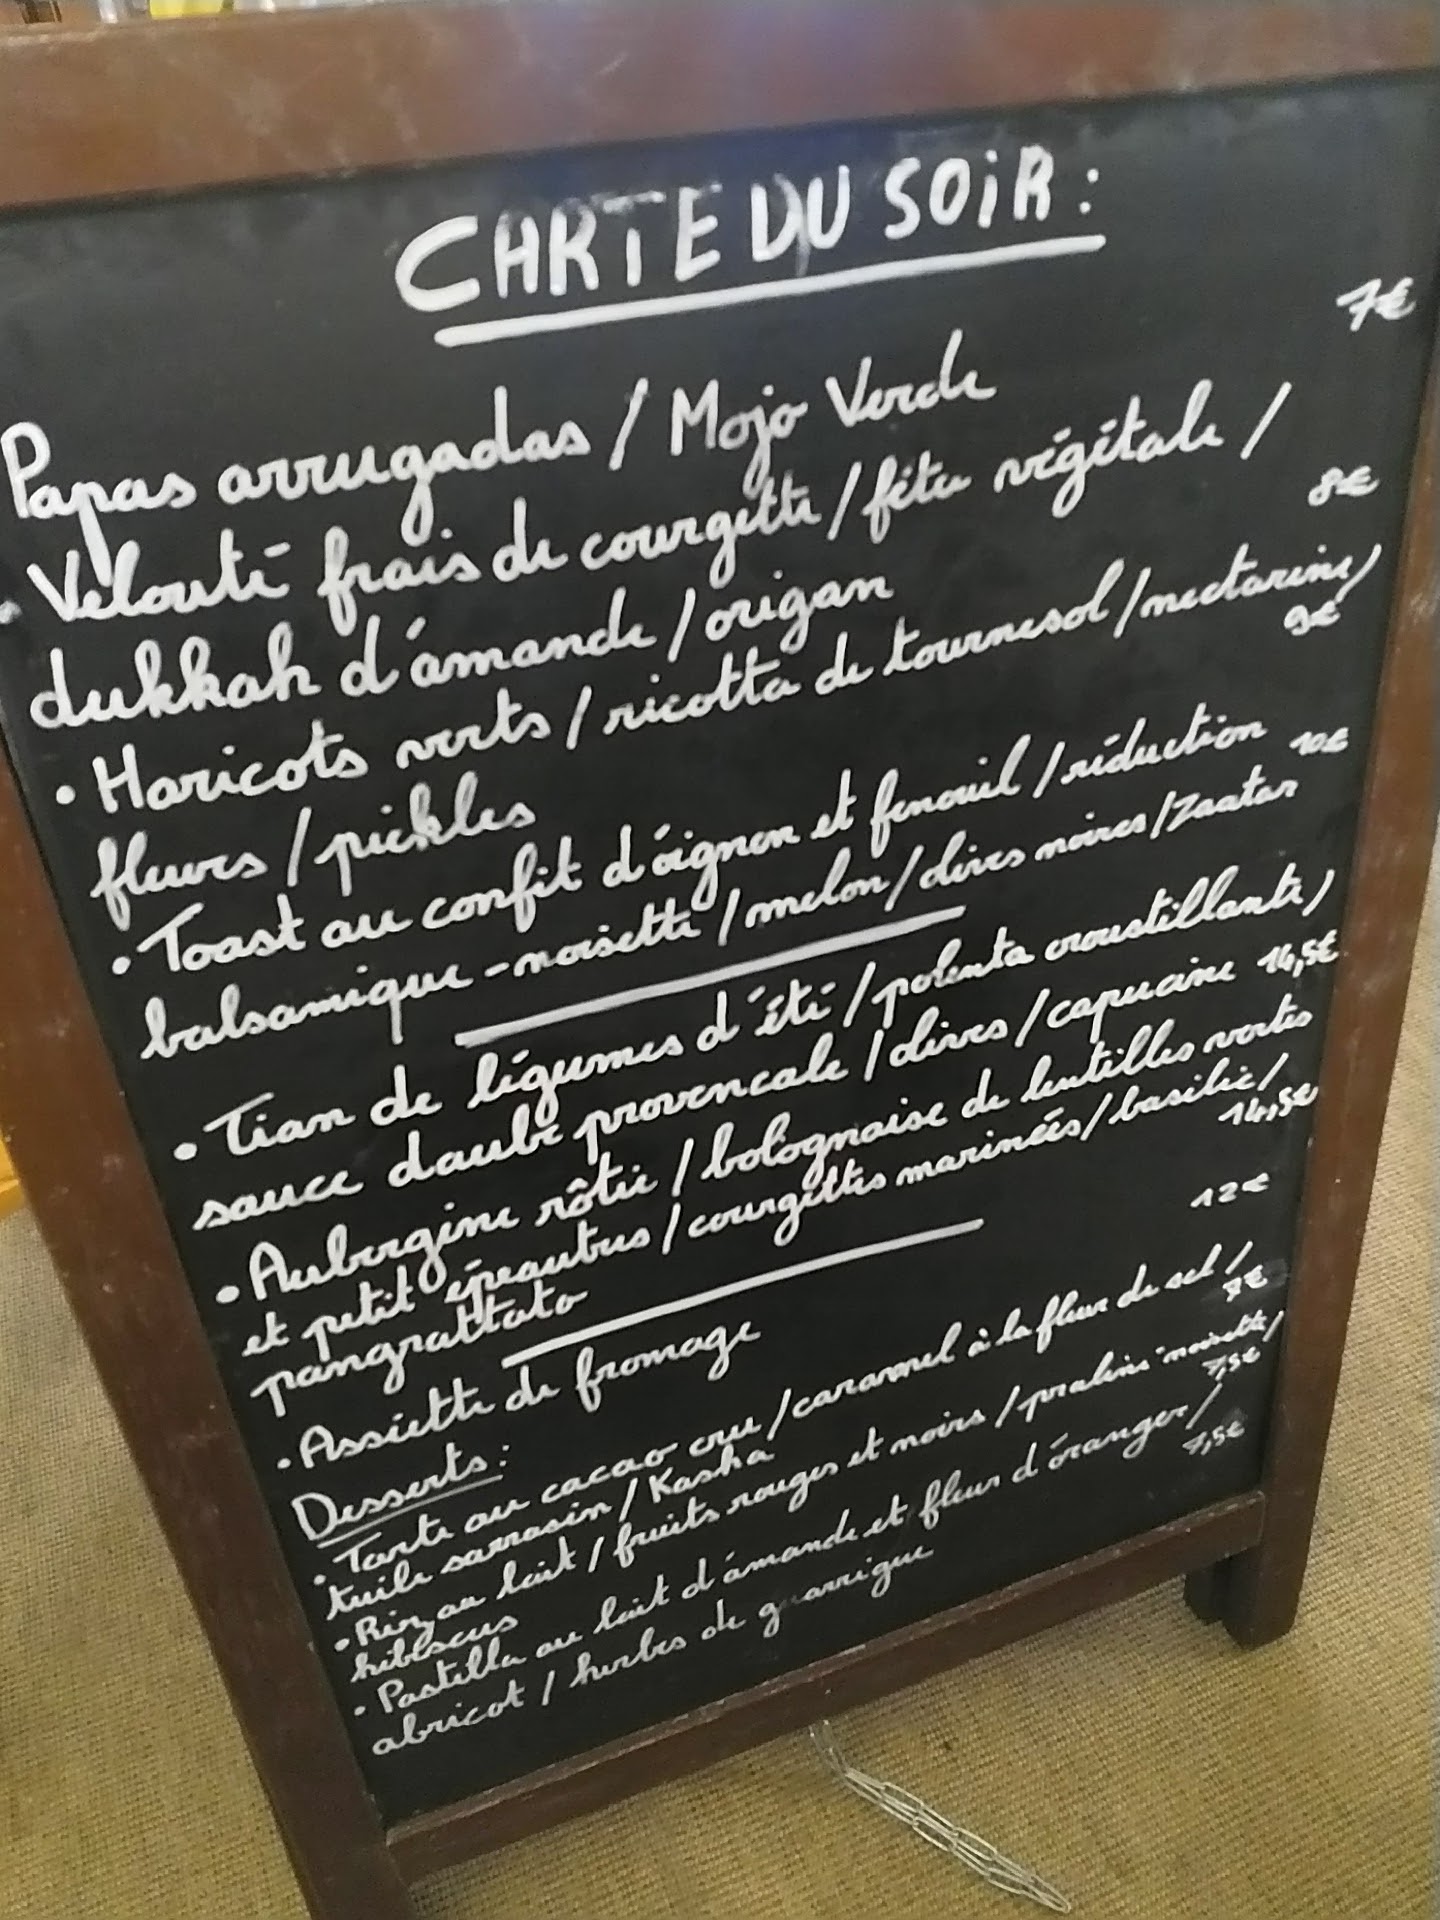 CARTE DU SOIR :
Papas arrugadas / Mojo Verde 7€
• Velouté frais de courgette / féta végétale /
dukkah d'amande / origan 8€
• Haricots verts / ricotta de tournesol / nectarine /
fleurs / pickles 9€
• Toast au confit d'oignon et fenouil / réduction
balsamique - noisette / melon / olives noires / Zaatar 10€
• Tian de légumes d'été / polenta croustillante /
sauce daube provencale / olives / capucine 14,5€
• Aubergine rôtie / bolognaise de lentilles vertes
et petit épeautres / courgettes marinées / basilic /
pangrattato 14,5€
• Assiette de fromage 12€
Desserts :
• Tarte au cacao cru / caramel à la fleur de sel /
tuile sarrasin / Kasha 7€
• Riz au lait / fruits rouges et noirs / praliné noisette /
hibiscus 7,5€
• Pastilla au lait d'amande et fleur d'oranger /
abricot / herbes de guarrigue 7,5€